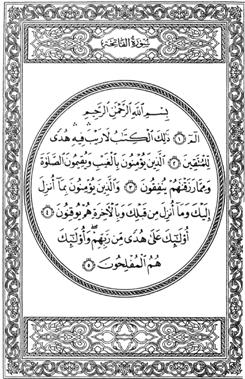 سُورَةُ الفَاتِحَةِ
بِسْمِ ٱللَّهِ ٱلرَّحْمَٰنِ ٱلرَّحِيمِ
الٓمٓ ﴿١﴾ ذَٰلِكَ ٱلْكِتَٰبُ لَا رَيْبَ ۛ فِيهِ ۛ هُدًى
لِّلْمُتَّقِينَ ﴿٢﴾ ٱلَّذِينَ يُؤْمِنُونَ بِٱلْغَيْبِ وَيُقِيمُونَ ٱلصَّلَوٰةَ
وَمِمَّا رَزَقْنَٰهُمْ يُنفِقُونَ ﴿٣﴾ وَٱلَّذِينَ يُؤْمِنُونَ بِمَآ أُنزِلَ
إِلَيْكَ وَمَآ أُنزِلَ مِن قَبْلِكَ وَبِٱلْءَاخِرَةِ هُمْ يُوقِنُونَ ﴿٤﴾
أُو۟لَٰٓئِكَ عَلَىٰ هُدًى مِّن رَّبِّهِمْ ۖ وَأُو۟لَٰٓئِكَ
هُمُ ٱلْمُفْلِحُونَ ﴿٥﴾